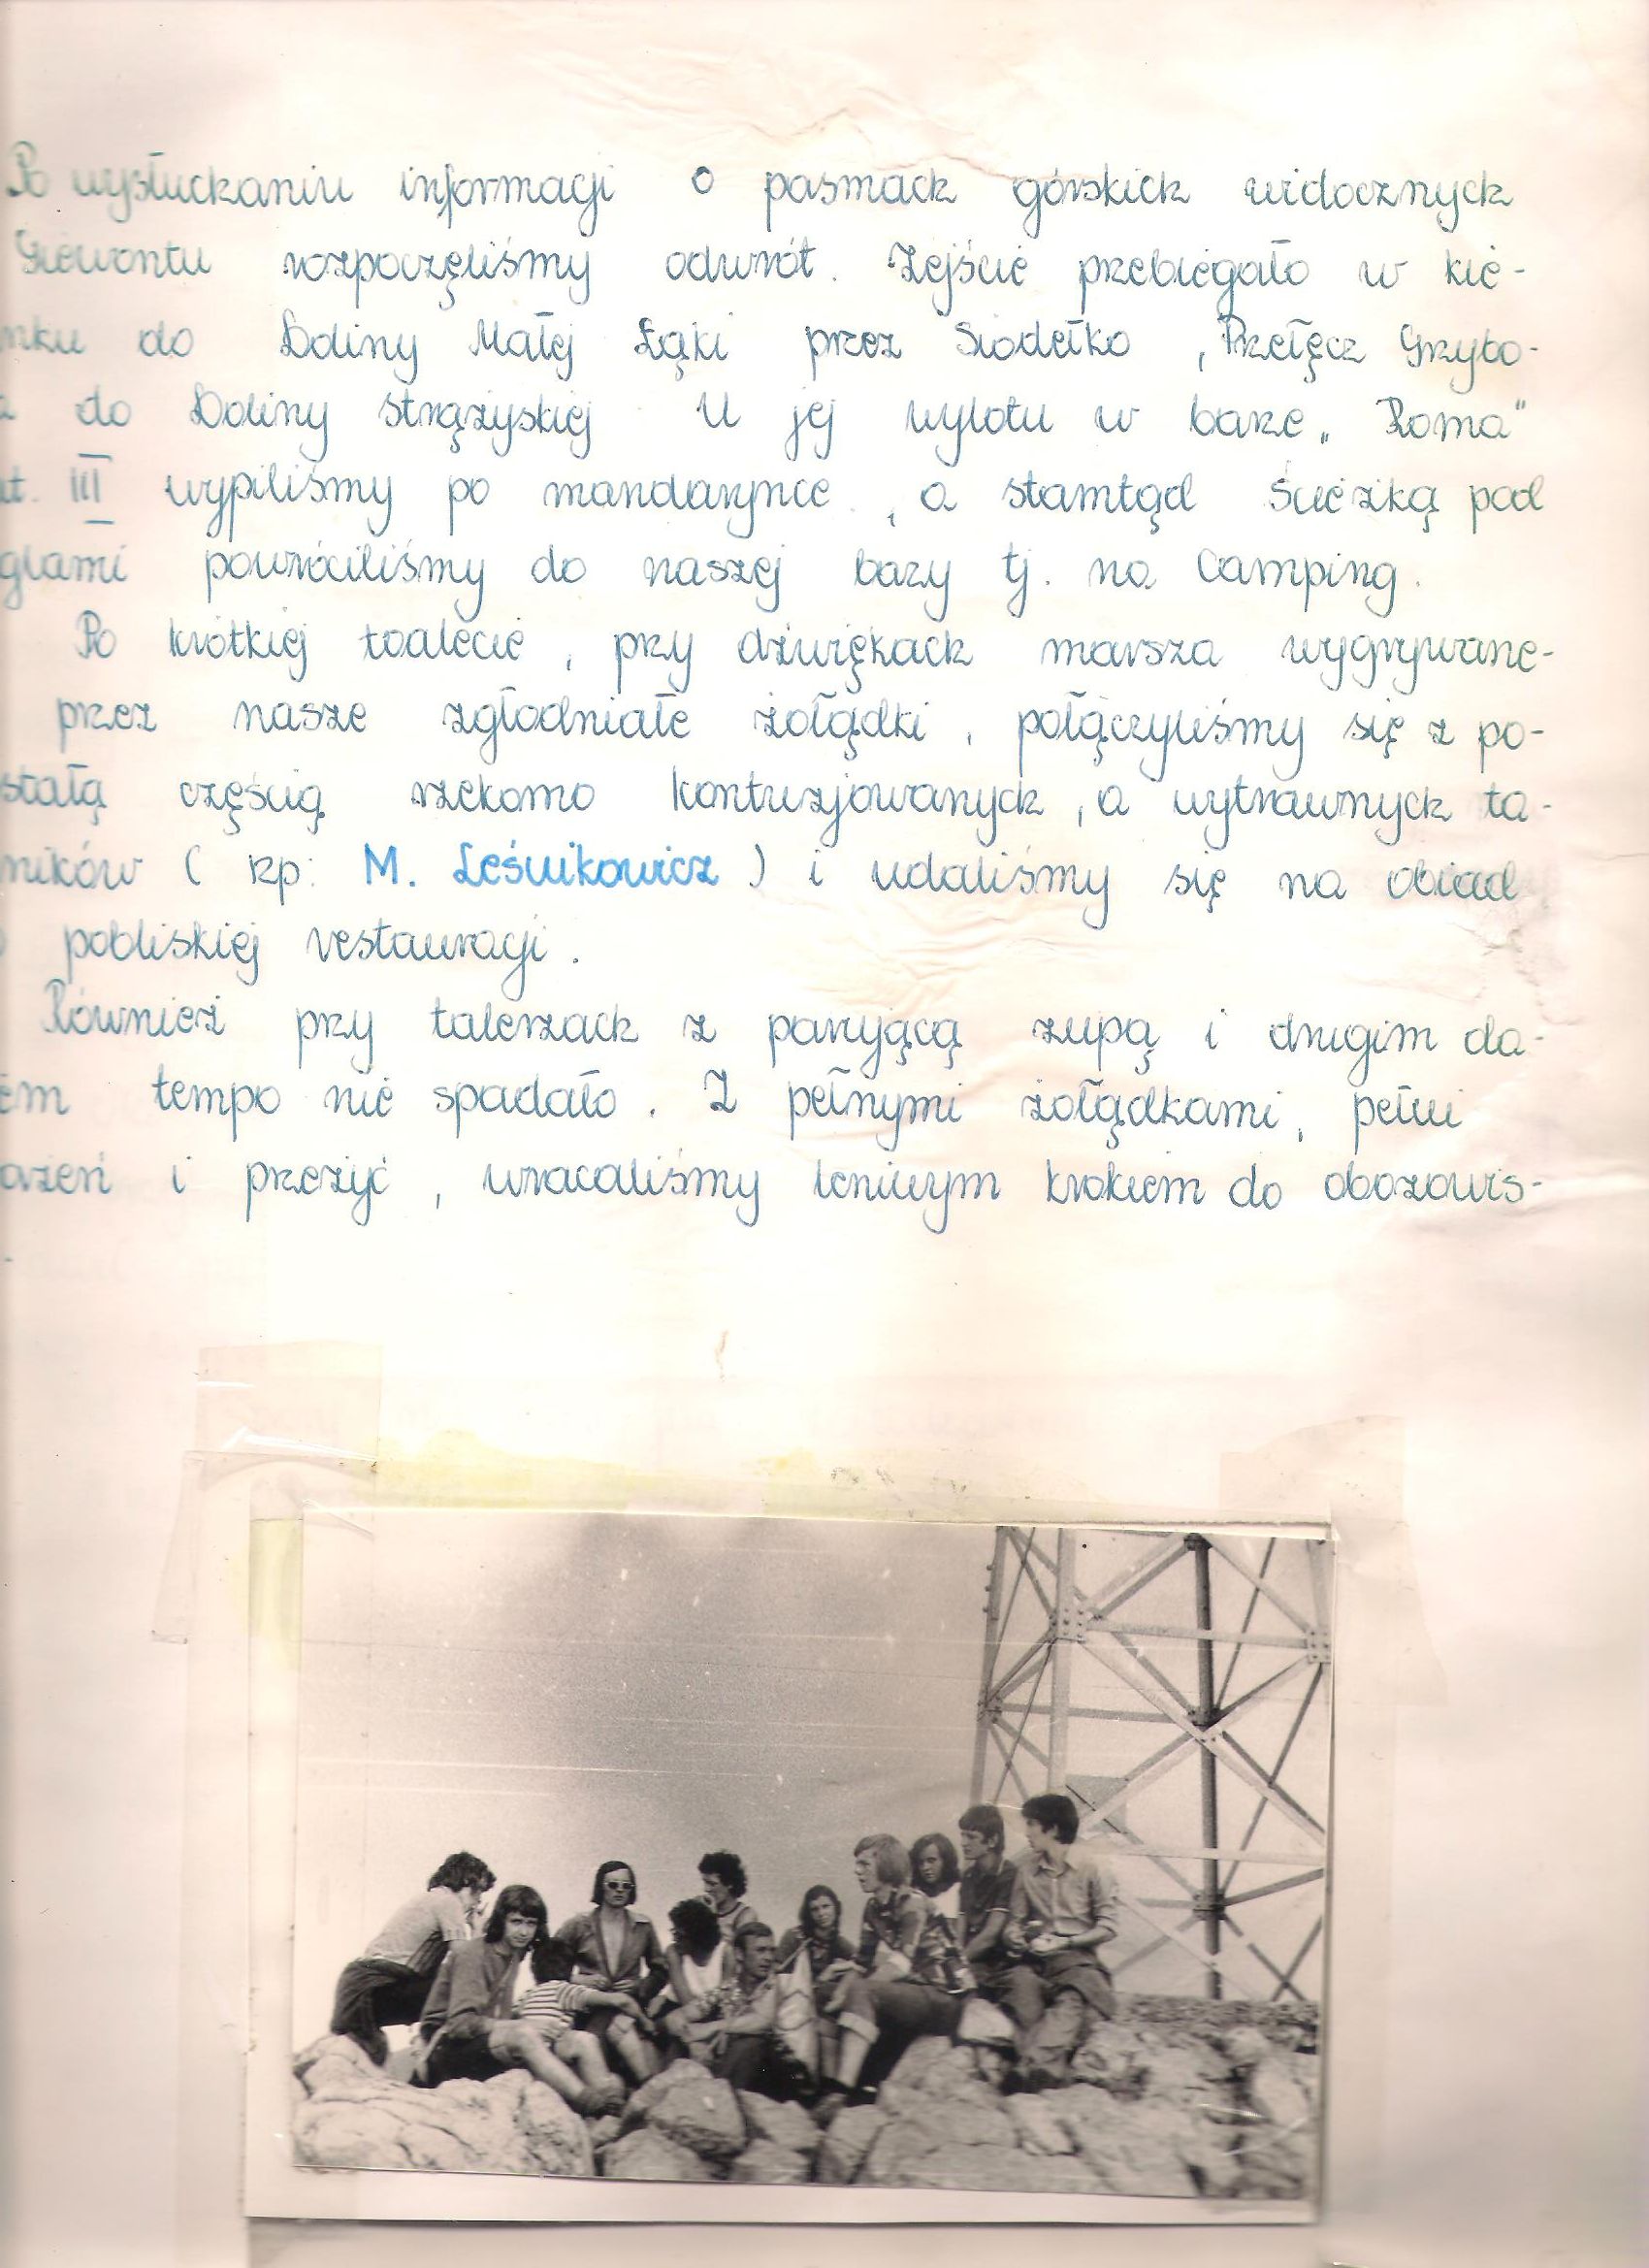 Po wysłuchaniu informacji o pasmach górskich widocznych
Giewontu rozpoczęliśmy odwrót. Zejście przebiegało w kie-
nku do Doliny Małej Łąki przez Siodełko, Przełęcz Grzybo-
a do Doliny Strążyskiej. U jej wylotu w barze „Roma"
at. III wypiliśmy po mandarynce, a stamtąd ścieżką pod
glami powróciliśmy do naszej bazy tj. na Camping.
Po krótkiej toalecie, przy dźwiękach marsza wygrywane-
przez nasze zgłodniałe żołądki, połączyliśmy się z po-
stałą częścią rzekomo kontuzjowanych, a wytrawnych ta-
ników ( np: M. Leśnikowicz ) i udaliśmy się na obiad
pobliskiej restauracji.
Również przy talerzach z parującą zupą i drugim da-
em tempo nie spadało. Z pełnymi żołądkami, pełni
ażeń i przeżyć, wracaliśmy leniwym krokiem do obozowis-